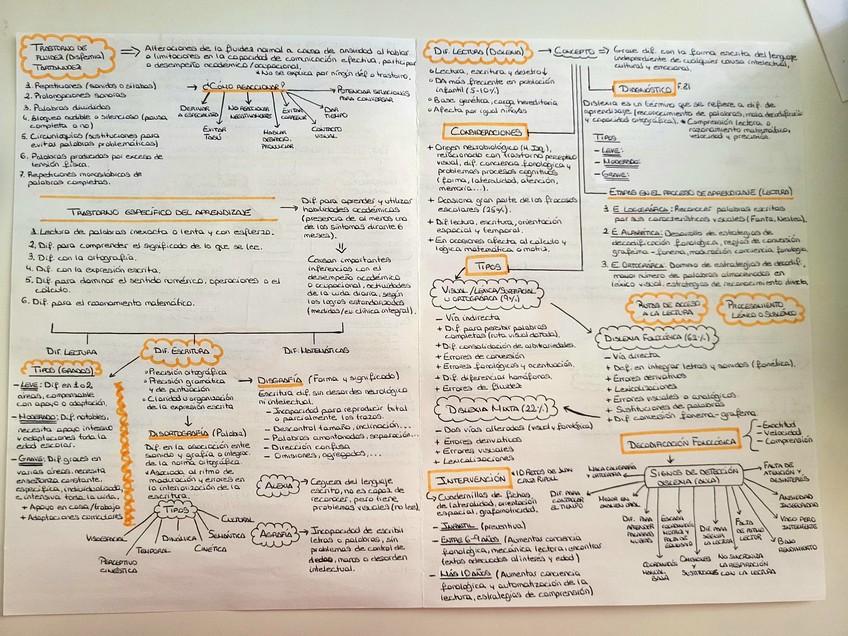 TRASTORNO DE
FLUIDEZ (DISFEMIA)
TARTAMUDEZ
Alteraciones de la fluidez normal a causa de ansiedad al hablar
o limitaciones en la capacidad de comunicación efectiva, particip.
o desempeño académico/ocupacional.
* No se explica por ningún déf. o trastorno.
1. Repeticiones (sonidos o sílabas)
2. Prolongaciones sonoras
3. Palabras divididas
4. Bloqueo audible o silencioso (pausa
completa o no)
5. Circunloquios (sustituciones para
evitar palabras problemáticas)
6. Palabras producidas por exceso de
tensión física.
7. Repeticiones monosílabicas de
palabras completas.
¿CÓMO REACCIONAR?
DERIVAR
A ESPECIALISTA
EVITAR
TABÚ
NO REACCIONAR
NEGATIVAMENTE
HABLAR
DESPACIO,
PRONUNCIAR
EVITAR
CORREGIR
CONTACTO
VISUAL
DAR
TIEMPO
POTENCIAR SITUACIONES
PARA CONVERSAR
TRASTORNO ESPECÍFICO DEL APRENDIZAJE
Dif. para aprender y utilizar
habilidades académicas
(presencia de al menos uno
de los síntomas dirante 6
meses).
1. Lectura de palabras inexacta o lenta y con esfuerzo.
2. Dif. para comprender el significado de lo que se lee.
3. Dif. con la ortografía.
4. Dif. con la expresión escrita.
5. Dif. para dominar el sentido numérico, operaciones o el
cálculo.
6. Dif. para el razonamiento matemático.
Causan importantes
inferencias con el
desempeño académico
o ocupacional, actividades
de la vida diaria, según
los logros estandarizados
(medidas/eu clínica integral).
DIF. LECTURA
DIF. ESCRITURA
DIF. MATEMÁTICAS
TIPOS (GRADOS)
- LEVE: Dif en 1 o 2
áreas, compensable
con apoyo o adaptación.
- MODERADO: Dif. notables,
necesita apoyo intensivo
y adaptaciones toda la
edad escolar.
- GRAVE: Dif graves en
varias áreas, necesita
enseñanza constante,
específica, individualizada,
e intensiva toda la vida.
+ Apoyo en casa/trabajo
+ Adaptaciones curriculares
Precisión ortográfica
Precisión gramatica
y de puntuación
Claridad u organización
de la expresión escrita
DISORTOGRAFÍA (Palabra)
Dif. en la asociación entre
sonido y grafía o integrac.
de la norma ortográfica.
* Asociada al ritmo de
maduración y errores en
la interiorización de la
escritura.
TIPOS
VISOESPACIAL
PERCEPTIVO
CINESTÉTICA
TEMPORAL
DINÁMICA
CINÉTICA
SEMÁNTICA
CULTURAL
DISGRAFÍA (Forma y significado)
Escritura dif. sin desorden neurológico
ni intelectual.
- Incapacidad para reproducir total
o parcialmente los trazos.
- Descontrol tamaño, inclinación...
- Palabras amontonadas, separación...
- Dirección confusa
- Omisiones, agregados,...
ALEXIA
Ceguera del lenguaje
escrito, no es capaz de
reconocer, pero tiene
problemas visuales (no lee).
AGRAFIA
Incapacidad de escribir
letras o palabras, sin
problemas de control de
dedos, mano o desorden
intelectual.
DIF. LECTURA (DISLEXIA)
CONCEPTO
Grave dif. con la forma escrita del lenguaje
independiente de cualquier causa intelectual,
cultural y emocional.
Lectura, escritura y deletreo
DA más frecuente en población
infantil (5-10%)
Base genética, carga hereditaria
Afecta por igual niños/as
DIAGNÓSTICO
F.81
Dislexia es un término que se refiere a dif. de
aprendizaje (reconocimiento de palabras, mala decodificación
y capacidad ortográfica). * Comprensión lectora o
razonamiento matemático,
velocidad y precisión.
TIPOS
- LEVE:
- MODERADO:
- GRAVE:
CONSIDERACIONES
+ Origen neurobiológico (H. Izq.),
relacionado con trastorno perceptivo
visual, dif. conciencia fonológica y
problemas procesos cognitivos
(forma, lateralidad, atención,
memoria...).
+ Ocasiona gran parte de los fracasos
escolares (25%).
+ Dif lectura, escritura, orientación
espacial y temporal.
+ En ocasiones afecta al cálculo y
lógica matemática o motriz.
ETAPAS EN EL PROCESO DE APRENDIZAJE (LECTURA)
1. E. LOGOGRÁFICA: Reconocer palabras escritas
por sus características visuales (Fanta, Nestea).
2. E. ALFABÉTICA: Desarrollo de estrategias de
decodificación fonológica, reglas de conversión
grafema-fonema, maduración conciencia fonológica.
3. E. ORTOGRÁFICA: Dominio de estrategias de decodif.,
mayor número de palabras almacenadas en
léxico visual, estrategias de reconocimiento directa.
RUTAS DE ACCESO
A LA LECTURA
PROCESAMIENTO
LÉXICO O SUBLÉXICO
TIPOS
VISUAL/LÉXICA/SUPERFICIAL
U ORTOGRÁFICA (9%)
- Vía indirecta
+ Dif. para percibir palabras
completas (ruta visual dañada).
+ Dif. consolidación de arbitrariedades.
+ Errores de conversión
+ Errores fonológicos y acentuación.
+ Dif. diferenciar homófonos.
+ Errores de fluidez
DISLEXIA FONOLÓGICA (62%)
- Vía directa
+ Dif. en integrar letras y sonidos (fonética).
+ Errores derivativos
+ Lexicalizaciones
+ Errores visuales o análogicos
+ Sustituciones de palabras
+ Dif. conversión fonema-grafema
DISLEXIA MIXTA (22%)
- Dos vías alteradas (visual y fonológica)
+ Errores derivativos
+ Errores visuales
+ Lexicalizaciones
DECODIFICACIÓN FONOLÓGICA
- Exactitud
- Velocidad
- Comprensión
INTERVENCIÓN
* 10 RETOS DE JUAN
CRUZ RIPOLL
Cuadernillos de fichas
de lateralidad, orientación
espacial, grafomotricidad.
- INFANTIL (preventiva)
- ENTRE 6-9 AÑOS (Aumentar conciencia
fonológica, mecánica lectora, encontrar
textos adecuados al interés y edad)
- MÁS 10 AÑOS (Aumentar conciencia
fonológica y automatización de la
lectura, estrategias de comprensión)
SIGNOS DE DETECCIÓN
DISLEXIA (AULA)
MALA CALIGRAFÍA
Y ORTOGRAFÍA
DIF. PARA
CONTROLAR
EL TIEMPO
MEJOR EN
EXAMEN ORAL
DIF. PARA
APRENDER
PALABRAS
NUEVAS
COORDINACIÓN
MANUAL
BAJA
ESCASA
COORDINACIÓN
MOTRIZ Y
FALTA DE
EQUILIBRIO
CAMBIOS Y
SUSTITUCIONES
DIF. PARA
SEGUIR LA
LECTURA
NO SINCRONIZA
LA RESPIRACIÓN
CON LA LECTURA
FALTA
DE RITMO
LECTOR
BAJO
RENDIMIENTO
VOCA PERO
SUFICIENTE
ANSIEDAD
INSEGURIDAD
FALTA DE
ATENCIÓN Y
DESINTERÉS